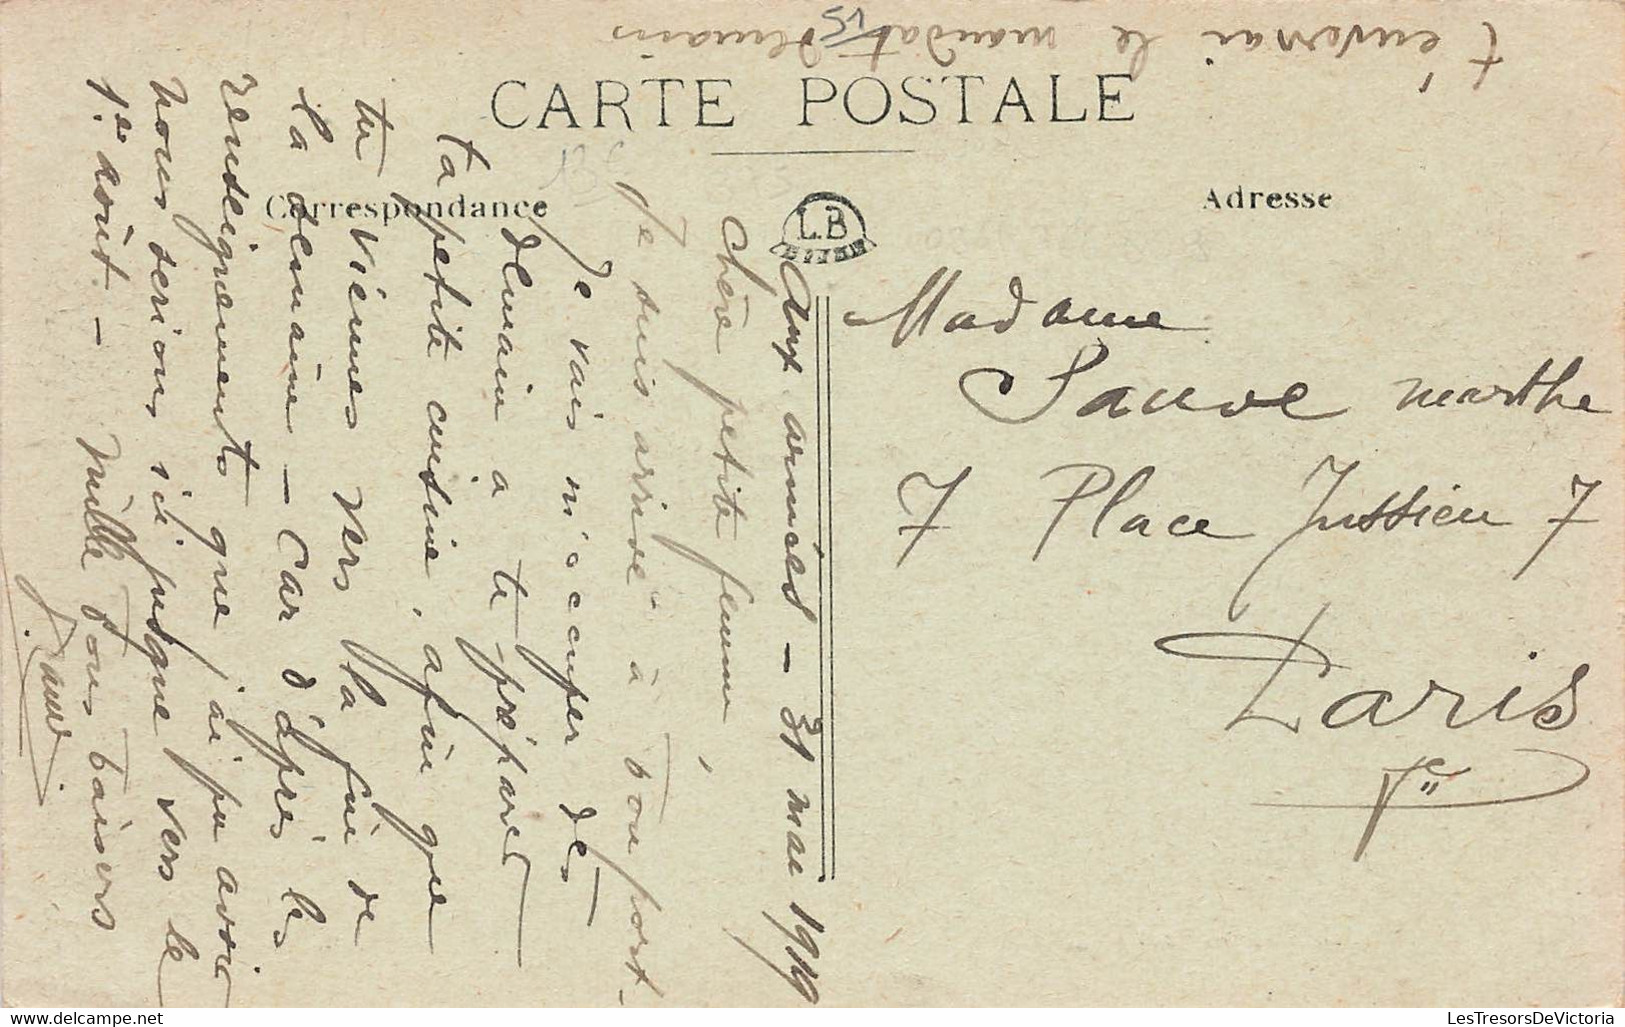 t'enverrai le mandat demain
CARTE POSTALE
Correspondance
Adresse
L.B
Aux armées - 31 mai 1919
Chère petite femme,
Je suis arrivé à bon port -
Je vais m'occuper dès
demain a te préparer
ta petite cuisine, afin que
tu viennes vers la fin de
la semaine - Car d'après les
renseignements que j'ai pu avoir
nous serions ici jusque vers le
1er août. - Mille bons baisers
Madame
Sauve marthe
7 Place Jussieu 7
Paris
Ve
LesTresorsDeVictoria
www.delcampe.net